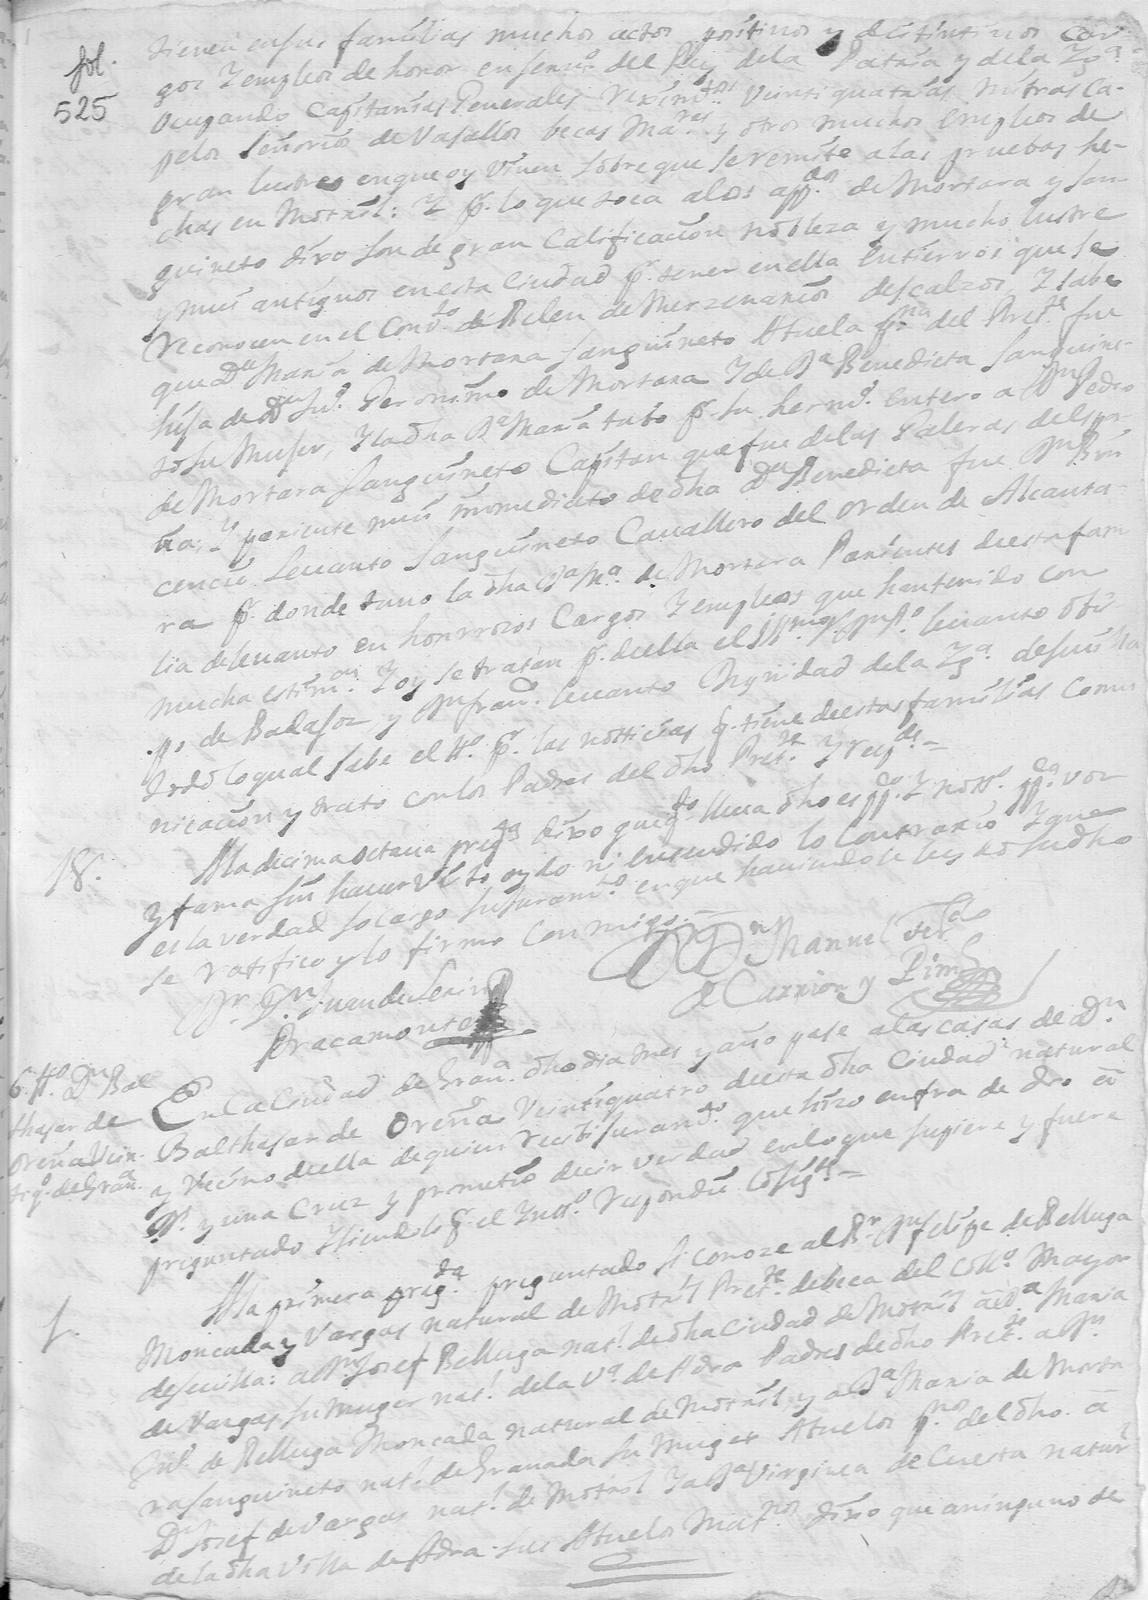 fol.
525
tienen ensus familias muchos actos positivos y distintivos car-
gos Y empleos de honor en serv.o del Rey de la Patria y de la Yg.a
ocupando Capitanias Generales Veintiquatrias Mitras Ca-
pelos Señorios de Vasallos becas Ma.res y otros muchos empleos de
gran lustre en que oy viven sobre que se remite a las pruebas he-
chas en Motril: Y p.r lo que toca a los app.dos de Mortara y San-
guineto dixo son de gran Calificacion nobleza y mucho lustre
y mui antiguos en esta Ciudad p.r tener en ella Entierros que se
reconocen en el Conv.to de Belen de Merzenarios descalzos, Y sabe
que D.a Maria de Mortara Sanguineto Abuela p.na del Pret.te fue
hija de D.n Ju.o Geronimo de Mortara Y de D.a Benedicta Sanguine-
to su Muger, Y la dha D.a Maria tubo p.r su herm.o entero a D.n Pedro
de Mortara Sanguineto Capitan que fue de las Galeras
Y pariente mui inmediato de dha D.a Benedicta fue D.n
Levanto Sanguineto Cavallero del orden de Alcanta-
ra p.r donde tuvo la dha D.a M.a de Mortara Parientes de esta fami
lia de Levanto en honrrosos Cargos Y empleos que han tenido con
mucha estim.on Y oy se tratan p.r de ella el Ill.mo Levanto obis-
po de Badajoz y D.n Fran.co Levanto Dignidad de la Yg.a de Sevilla
Y todo lo qual sabe el t.o p.r las notticias q.e tiene de estas familias Comu
nicacion y trato con los Padres del dho Pret.te Y resp.de =
18.
A la decima octava preg.ta dixo que q.to lleva dho es pp.co Y nott.o pp.ca voz
y fama sin haver visto oydo ni entendido lo Contrario Y que
es la verdad so cargo su Juram.to en que haviendosele leydo su dho
se ratifico y lo firmo Con migo. =
D.n Manuel
de Carrion y
D.r D.n Juan de
Bracamonte
6. t.o D.n Bal
thasar de
Oreña Vein-
tiq.o de Gran.a
En la Ciudad de Gran.a dho dia mes y año pase a las casas de D.n
Balthasar de Oreña Veintiquatro de esta dha Ciudad natural
y Vecino de ella de quien recibi Juram.to que hizo en fra de dro a
D.s y una Cruz y prometio decir verdad en lo que supiere y fuere
preguntado Y siendolo p.r el Ynt.o respondio lo sig.te =
1.
A la primera preg.ta preguntado si conoze al D.r D.n Felipe de Belluga
Moncada y Vargas natural de Motril Pret.te de beca del Coll.o Mayor
de sevilla: a D.n Josef Belluga nat.l de dha Ciudad de Motril a D.a Maria
de Vargas su Muger nat.l de la V.a de Adra Padres de dho Pret.te a D.n
de Belluga Moncada natural de Motril, y a D.a Maria de Morta
ra Sanguineto nat.l de Granada su Muger Abuelos p.nos del dho. a
D.n Josef de Vargas nat.l de Motril Y a D.a Virginea de Cuesta natur.l
de la dha Villa de Adra sus Abuelos Mat.nos dixo que a ninguno de